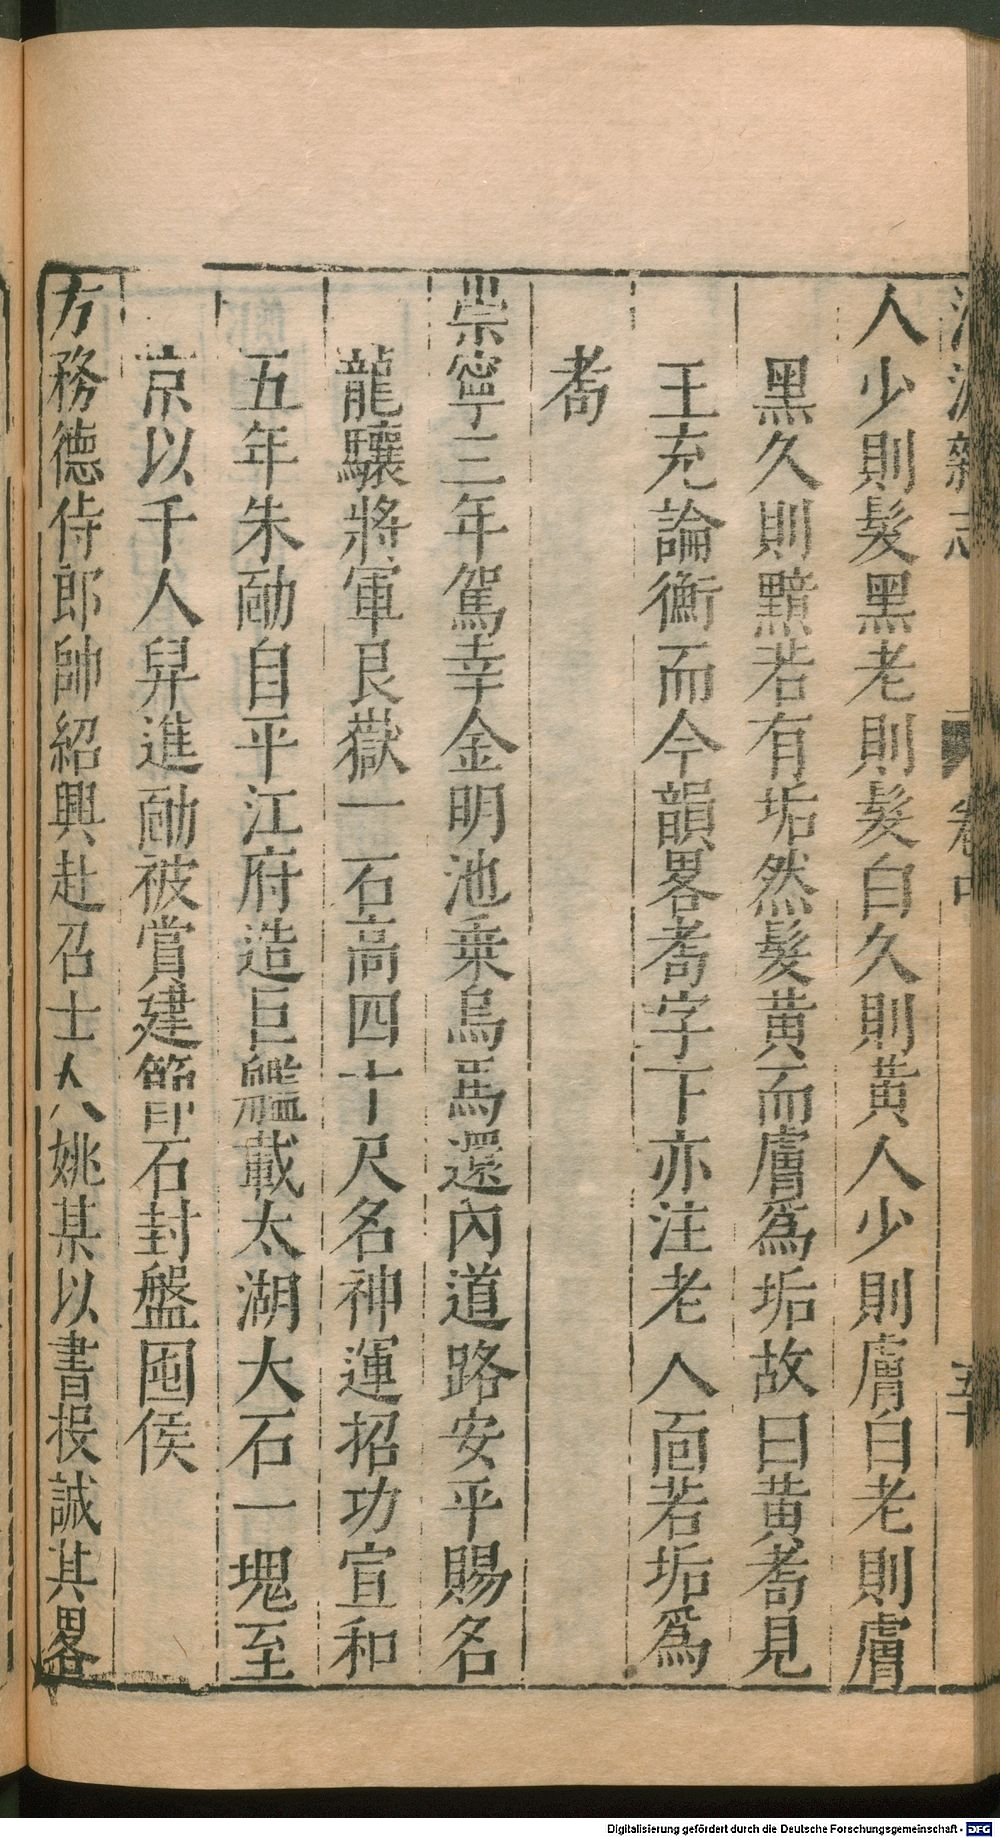 人少則髮黑老則髮白久則黃人少則膚白老則膚
黑久則黯若有垢然髮黃而膚爲垢故曰黃耈見
王充論衡而今韻畧耈字下亦注老人面若垢爲
耈
崇寧三年駕幸金明池乗烏馬還內道路安平賜名
龍驤將軍艮嶽一石高四十尺名神運招功宣和
五年朱勔自平江府造巨艦載太湖大石一塊至
京以千人舁進勔被賞建節石封盤固侯
方務德侍郎帥紹興赴召士人姚某以書投誠其畧
Digitalisierung gefördert durch die Deutsche Forschungsgemeinschaft - DFG